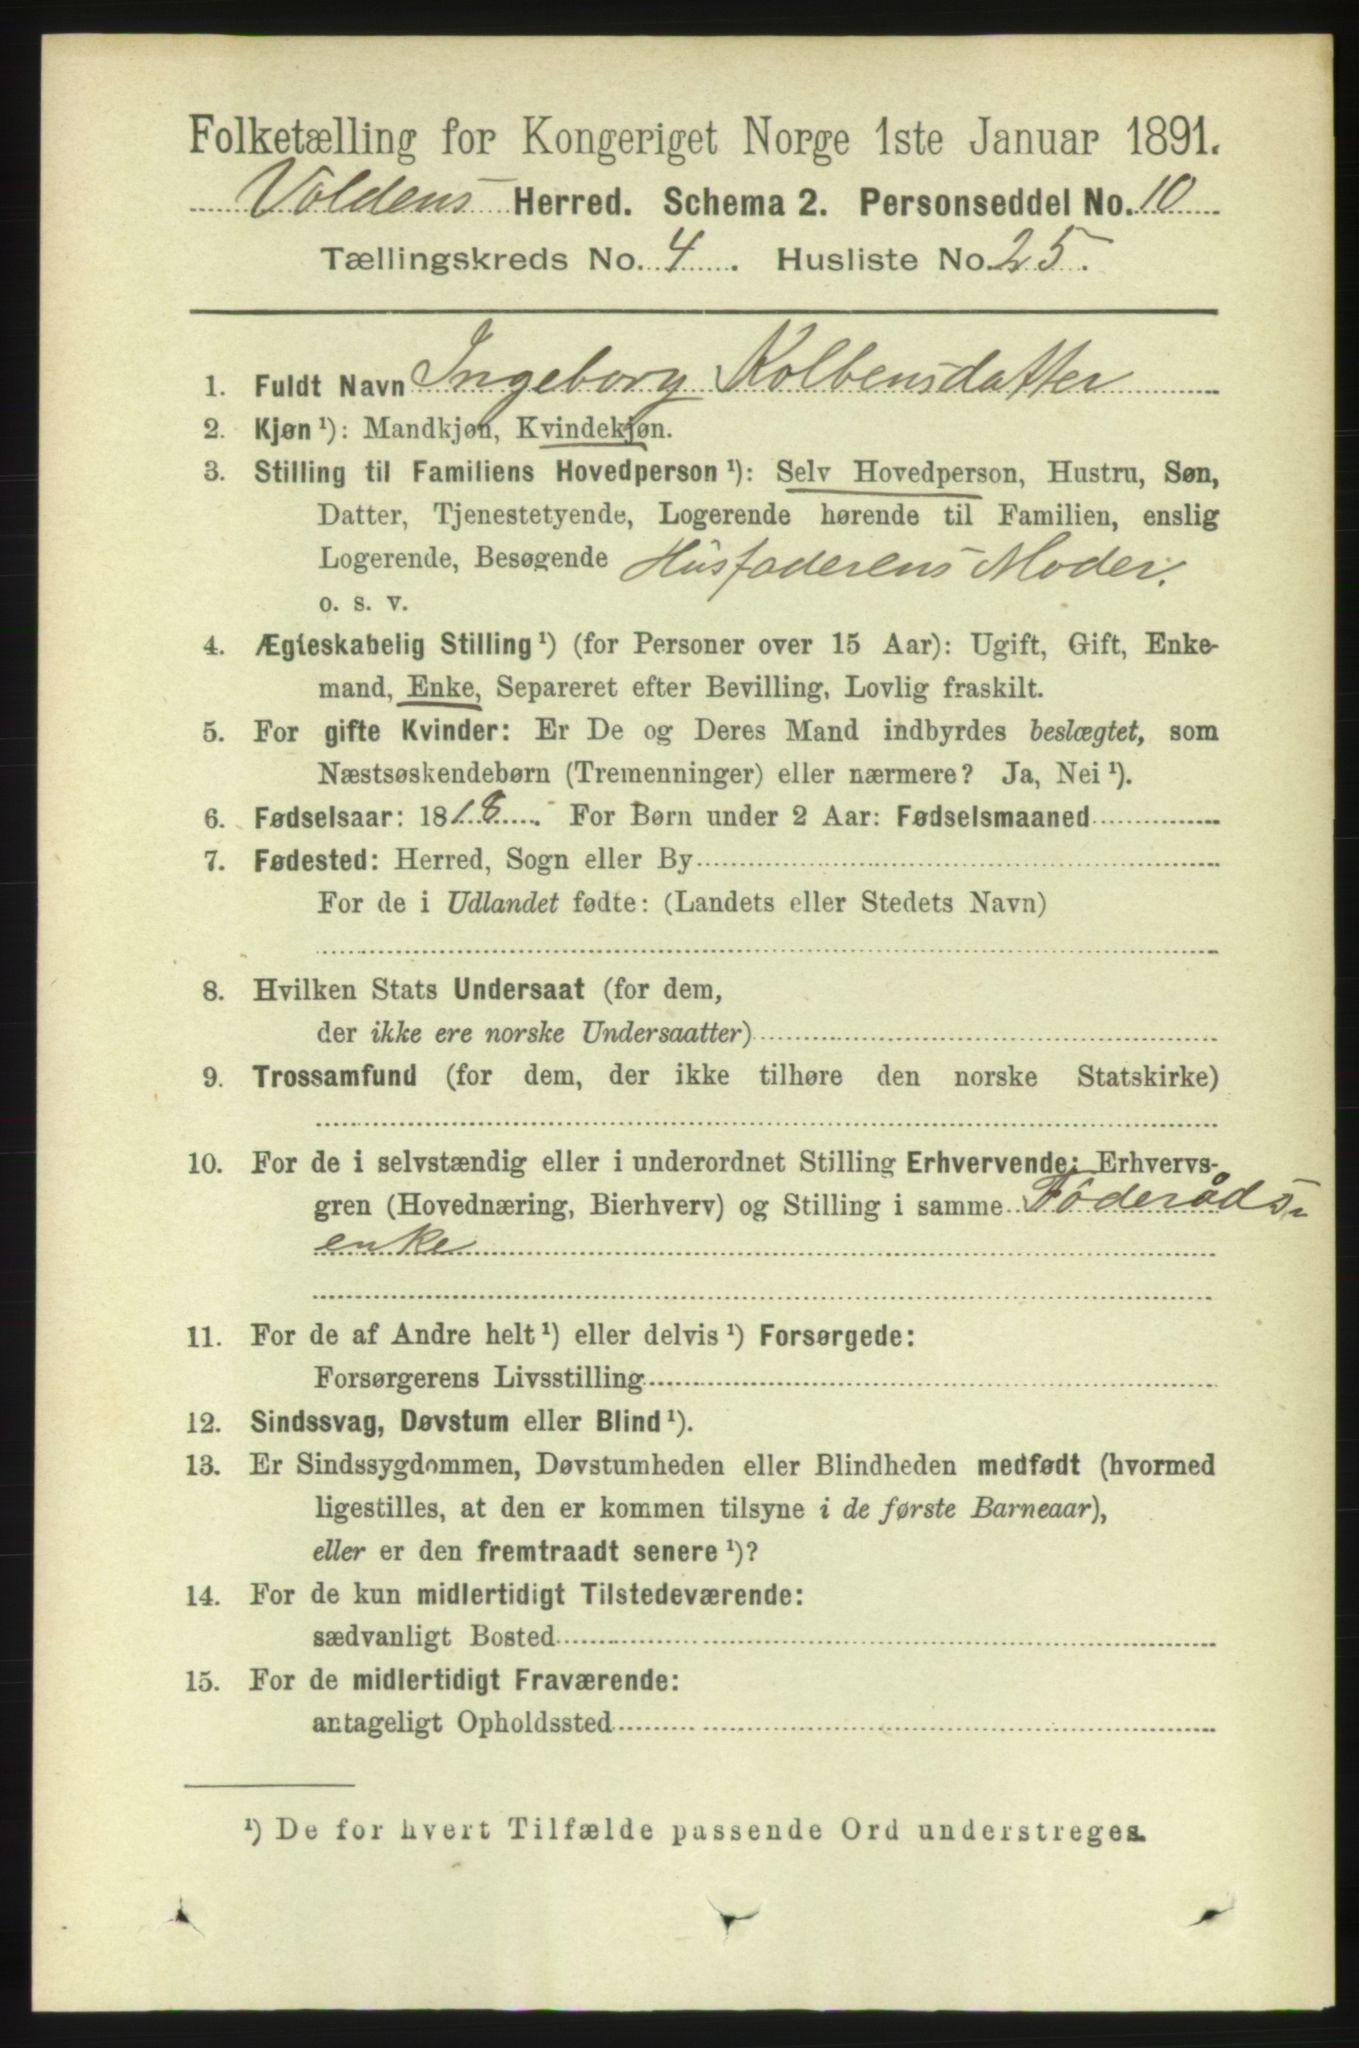 Folketælling for Kongeriget Norge 1ste Januar 1891.
Voldens Herred. Schema 2. Personseddel No. 10
Tællingskreds No. 4. Husliste No. 25.
1. Fuldt Navn Ingeborg Kolbensdatter
2. Kjøn ¹): Mandkjøn, Kvindekjøn.
3. Stilling til Familiens Hovedperson ¹): Selv Hovedperson, Hustru, Søn,
Datter, Tjenestetyende, Logerende hørende til Familien, enslig
Logerende, Besøgende Husfaderens Moder.
o. s. v.
4. Ægteskabelig Stilling ¹) (for Personer over 15 Aar): Ugift, Gift, Enke-
mand, Enke, Separeret efter Bevilling, Lovlig fraskilt.
5. For gifte Kvinder: Er De og Deres Mand indbyrdes beslægtet, som
Næstsøskendebørn (Tremenninger) eller nærmere? Ja, Nei ¹).
6. Fødselsaar: 1818. For Børn under 2 Aar: Fødselsmaaned
7. Fødested: Herred, Sogn eller By
For de i Udlandet fødte: (Landets eller Stedets Navn)
8. Hvilken Stats Undersaat (for dem,
der ikke ere norske Undersaatter)
9. Trossamfund (for dem, der ikke tilhøre den norske Statskirke)
10. For de i selvstændig eller i underordnet Stilling Erhvervende: Erhvervs-
gren (Hovednæring, Bierhverv) og Stilling i samme Föderåds-
enke
11. For de af Andre helt ¹) eller delvis ¹) Forsørgede:
Forsørgerens Livsstilling
12. Sindssvag, Døvstum eller Blind ¹).
13. Er Sindssygdommen, Døvstumheden eller Blindheden medfødt (hvormed
ligestilles, at den er kommen tilsyne i de første Barneaar),
eller er den fremtraadt senere ¹)?
14. For de kun midlertidigt Tilstedeværende:
sædvanligt Bosted
15. For de midlertidigt Fraværende:
antageligt Opholdssted
¹) De for hvert Tilfælde passende Ord understreges.